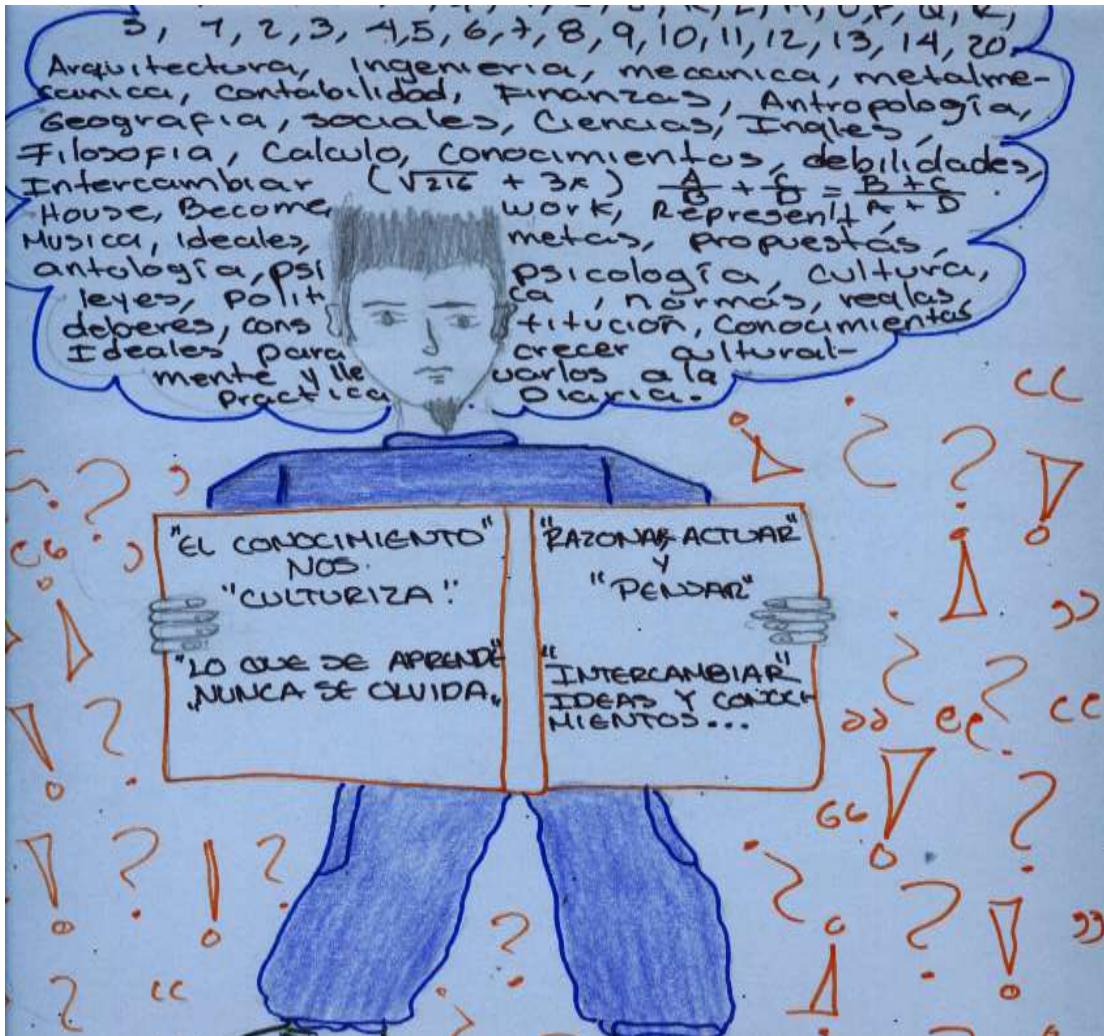 5, 7, 2, 3, 4, 5, 6, 7, 8, 9, 10, 11, 12, 13, 14, 20
Arquitectura, ingenieria, mecanica, metalme-
canica, contabilidad, Finanzas, Antropología,
Geografia, sociales, Ciencias, Ingles,
Filosofia, Calculo, conocimientos, debilidades,
Intercambiar (√216 + 3x) A/B + C/D = B + C/A + D.
House, Become, work, Represent,
Musica, ideales, metas, propuestás,
antología, psi psicología, cultura,
leyes, polit ca, normás, reglas,
deberes, cons titución, Conocimientos
Ideales para crecer cultural-
mente y lle varlos a la
practica Diaria.
"EL CONOCIMIENTO"
NOS.
"CULTURIZA!"
"LO QUE SE APRENDE"
"NUNCA SE OLVIDA"
"RAZONAR, ACTUAR"
Y
"PENSAR"
"INTERCAMBIAR"
IDEAS Y CONOCI-
MIENTOS...